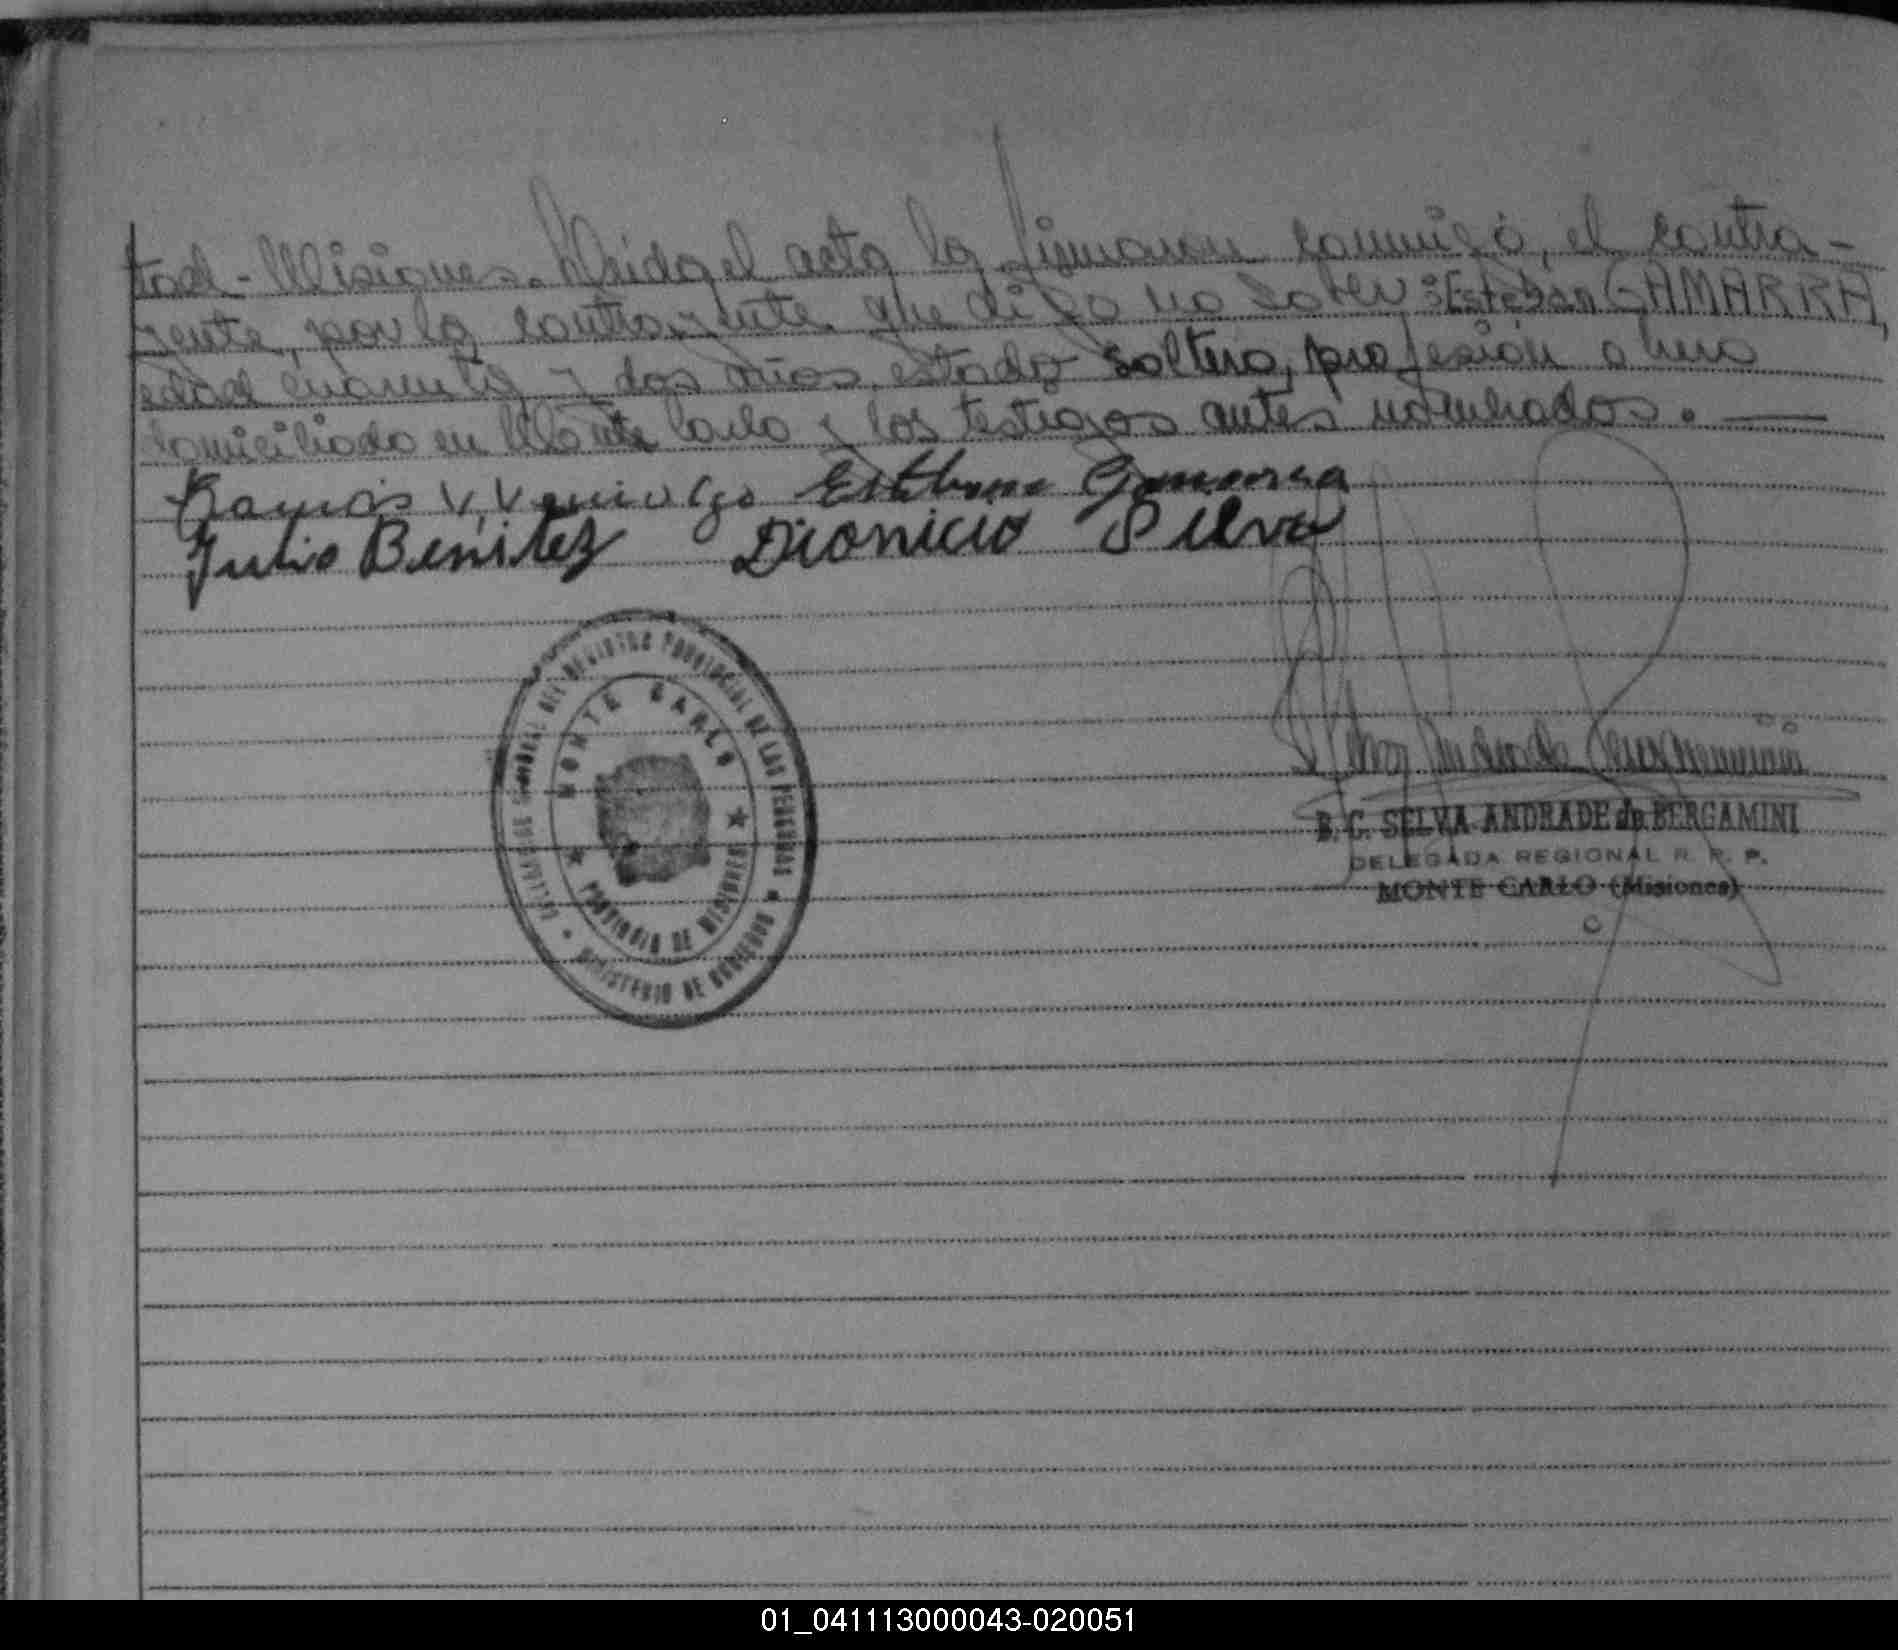 tad - Misiones. Leída el acta la firmaron conmigo, el contra-
yente, por la contrayente que dijo no saber: Esteban GAMARRA,
edad cuarenta y dos años, estado soltero, profesión obrero
domiciliado en Monte Carlo y los testigos antes nombrados.
Ramón V. Esteban Gamarra
Julio Benitez Dionicio Silva
DEL REGISTRO PROVINCIAL DE LAS PERSONAS
MONTE CARLO
PROVINCIA DE MISIONES
MINISTERIO DE GOBIERNO
Selva Andrade Bergamini
B. C. SELVA ANDRADE de BERGAMINI
DELEGADA REGIONAL R. P. P.
MONTE CARLO (Misiones)
01_041113000043-020051